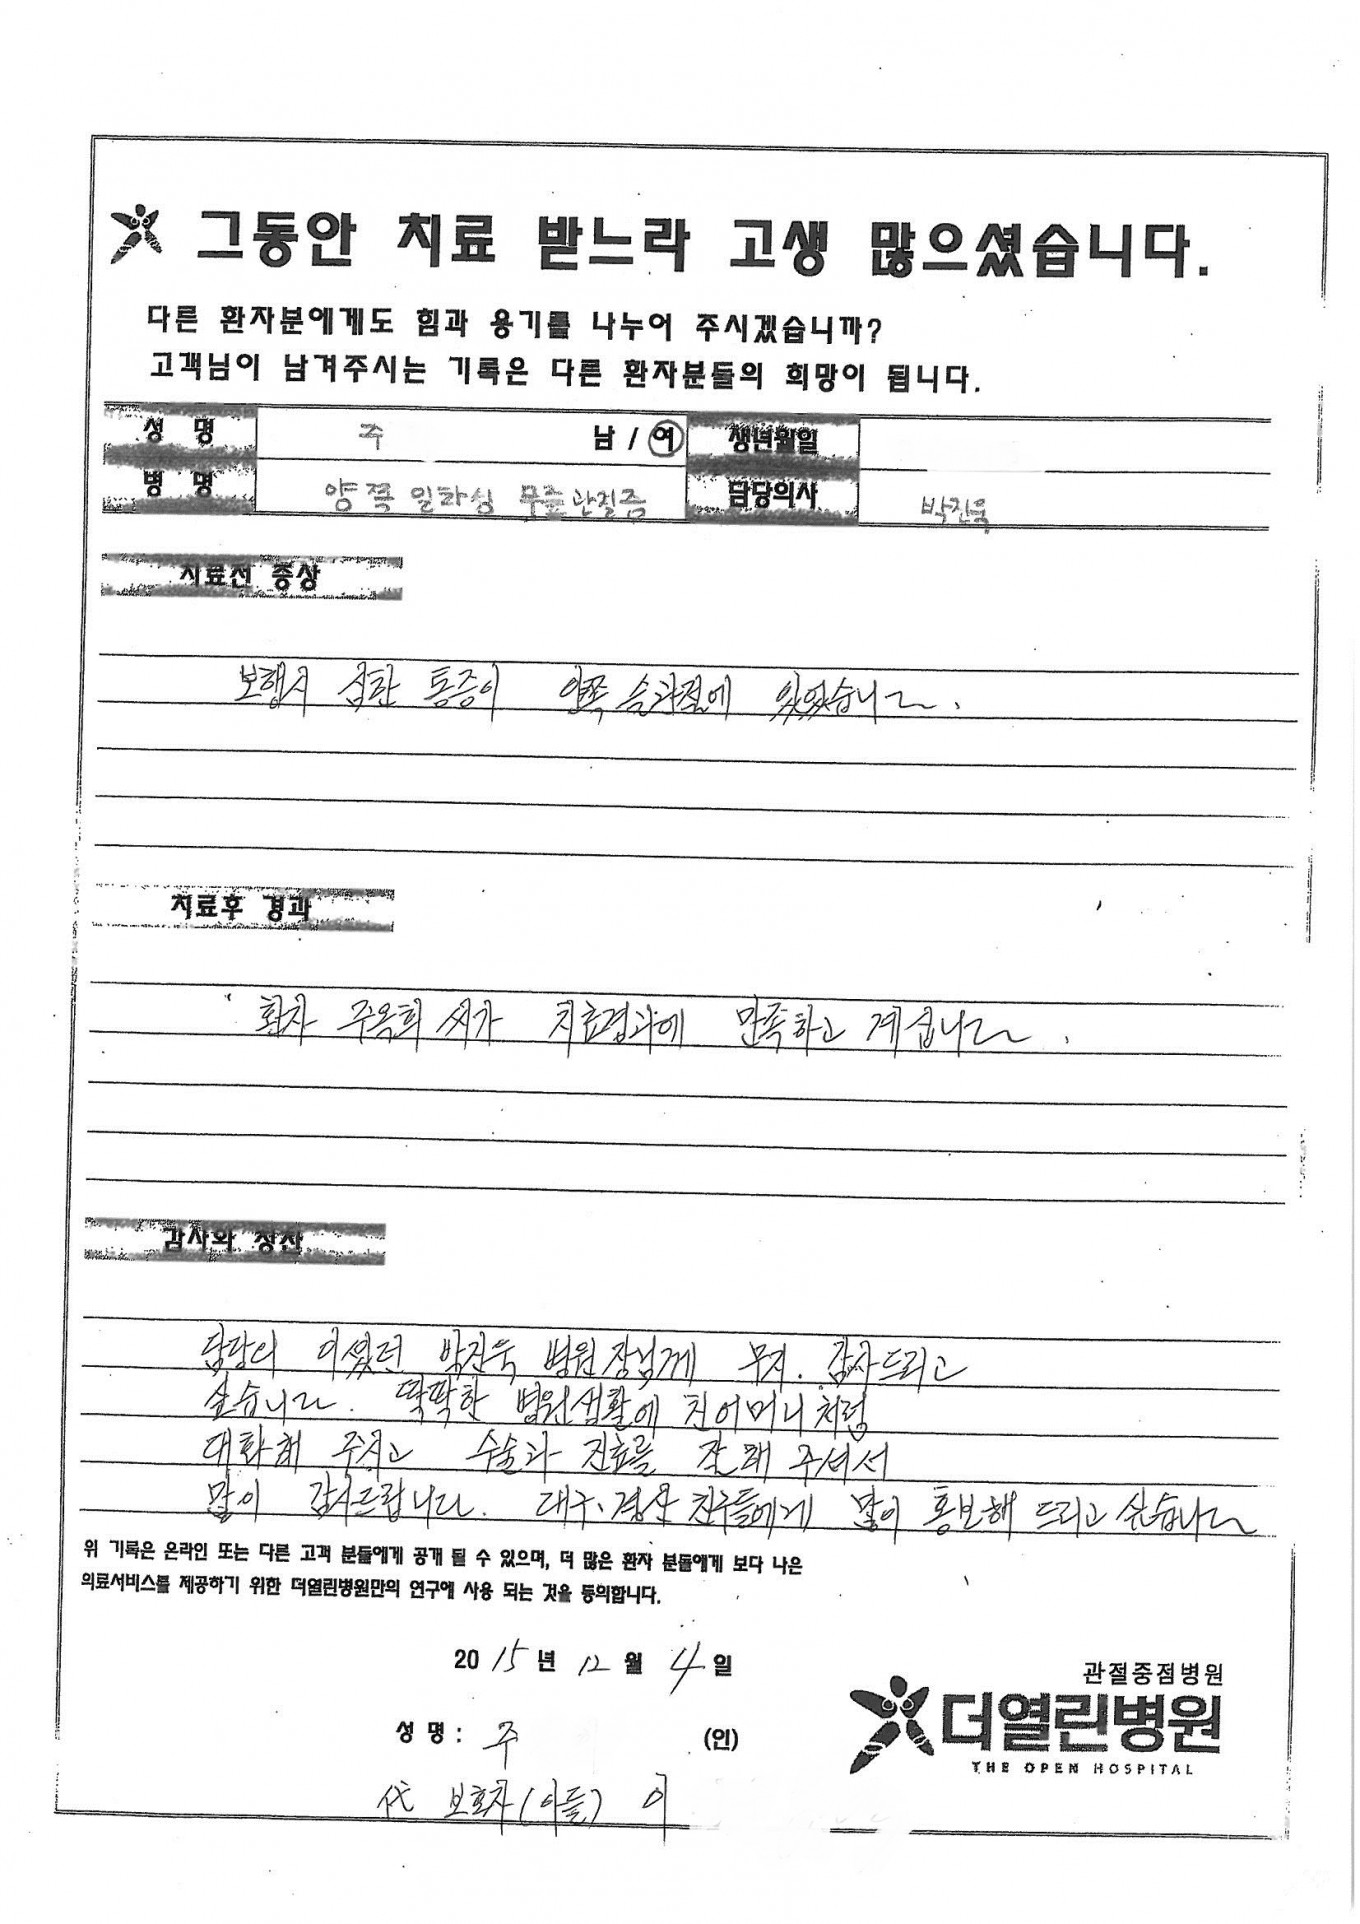 그동안 치료 받느라 고생 많으셨습니다.
다른 환자분에게도 힘과 용기를 나누어 주시겠습니까?
고객님이 남겨주시는 기록은 다른 환자분들의 희망이 됩니다.
성 명 주 남 / 여 생년월일
병 명 양쪽 일차성 무릎관절증 담당의사 박진욱
치료전 증상
보행시 심한 통증이 양쪽 슬관절에 있었습니다.
치료후 경과
환자 주옥희 씨가 치료결과에 만족하고 계십니다.
감사와 칭찬
담당의 이셨던 박진욱 병원장님께 무지. 감사드리고
싶습니다. 딱딱한 병원생활에 친어머니처럼
대화해 주시고 수술과 진료를 잘해 주셔서
많이 감사드립니다. 대구·경산 친구들에게 많이 홍보해 드리고 싶습니다
위 기록은 온라인 또는 다른 고객 분들에게 공개 될 수 있으며, 더 많은 환자 분들에게 보다 나은
의료서비스를 제공하기 위한 더열린병원만의 연구에 사용 되는 것을 동의합니다.
2015년 12월 4일
관절중점병원
더열린병원
THE OPEN HOSPITAL
성 명 : 주 (인)
代 보호자(아들) 이